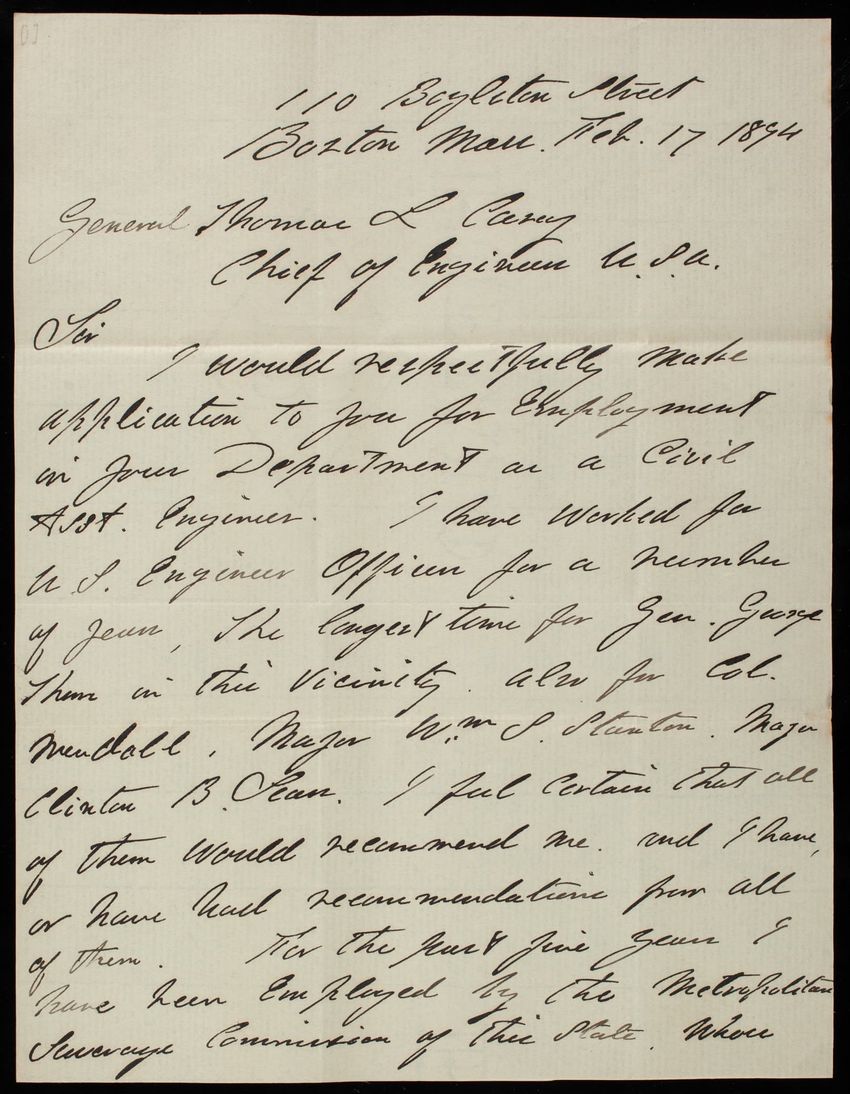 110 Boylston Street
Boston Mass. Feb. 17 1894
General Thomas L Casey
Chief of Engineers U.S.A.
Sir
I would respectfully make
application to you for Employment
in your Department as a Civil
Asst. Engineer. I have worked for
U.S. Engineer Officers for a number
of years, The longest time for Gen. George
Thom in this Vicinity. also for Col.
Mendall, Major Wm. S. Stanton. Major
Clinton B. Sears. I feel certain that all
of them would recommend me. and I have,
or have had recommendations from all
of them. For the past five years I
have been Employed by the Metropolitan
Sewerage Commission of this State. Whose